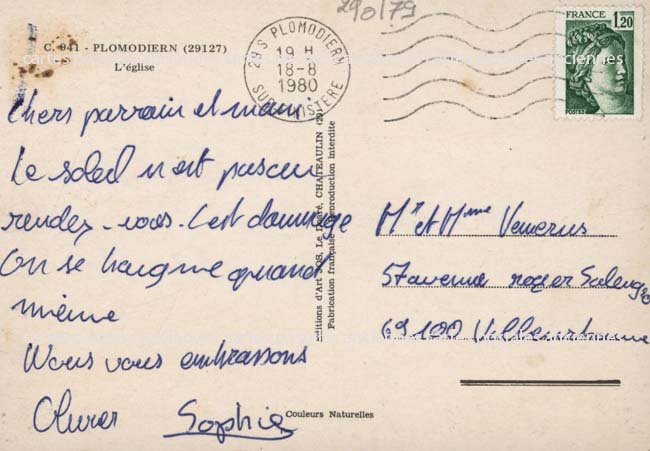 290/79
C. 941 - PLOMODIERN (29127)
L'église
29 S PLOMODIERN
19 H
18-8
1980
SUD FINISTERE
FRANCE
1,20
Chers parrain et mam
Le soleil n'est pas au
rendez-vous. C'est dommage
On se baigne quand
même
Nous vous embrassons
Olivier Sophie
Editions d'Art JOS, Le Doaré, CHATEAULIN (29)
Fabrication française - Reproduction interdite
Mr et Mme Venerus
57 avenue roger Salengro
69100 Villeurbanne
Couleurs Naturelles